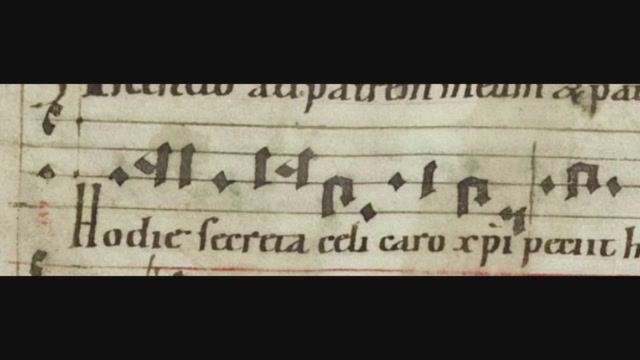 ad patrem meum & pa
Hodie secreta celi caro xp̄i petiit h